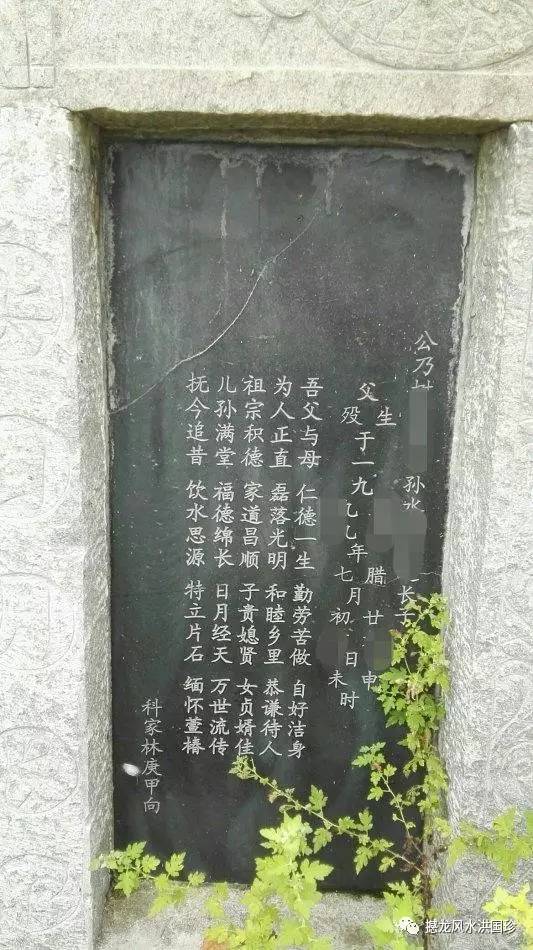 公乃 孙 长子
父生于一九 年腊月廿 日申时
殁 七 初 未
吾父与母 仁德一生 勤劳苦做 自好洁身
为人正直 磊落光明 和睦乡里 恭谦待人
祖宗积德 家道昌顺 子贵媳贤 女贞婿佳
儿孙满堂 福德绵长 日月经天 万世流传
抚今追昔 饮水思源 特立片石 缅怀萱椿
科家林庚甲向
撼龙风水洪国珍